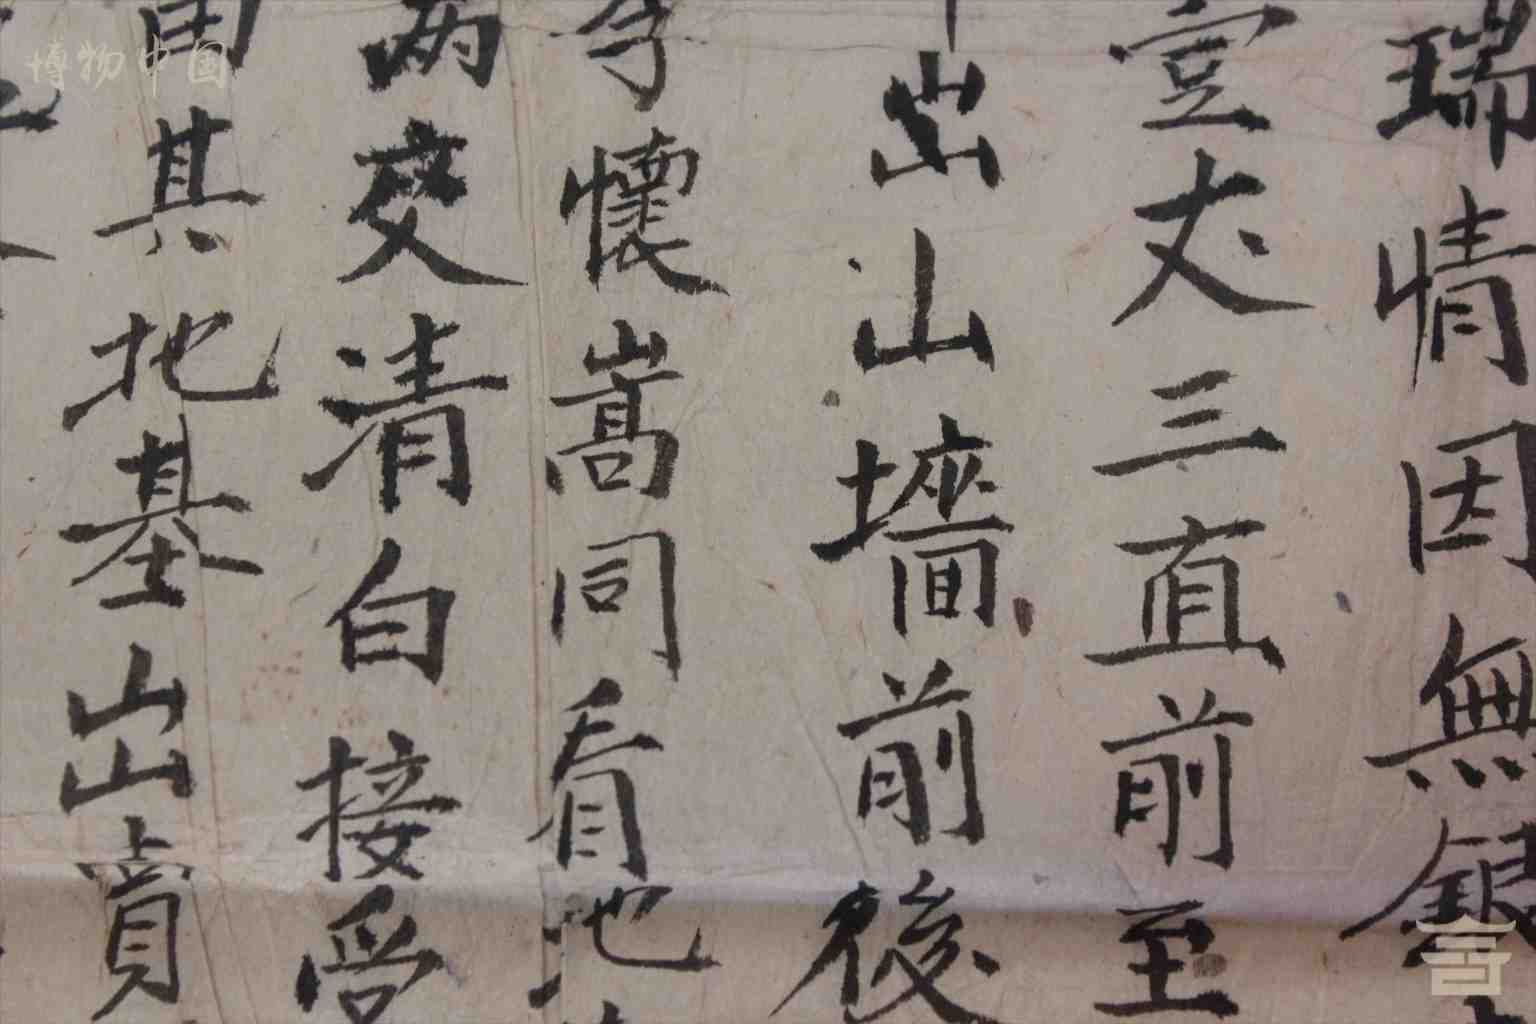 瑞情因無銀
壹丈三直前至
出山墻前後
李懷嵩同看地
兩交清白接受
其地基出賣
博物中国